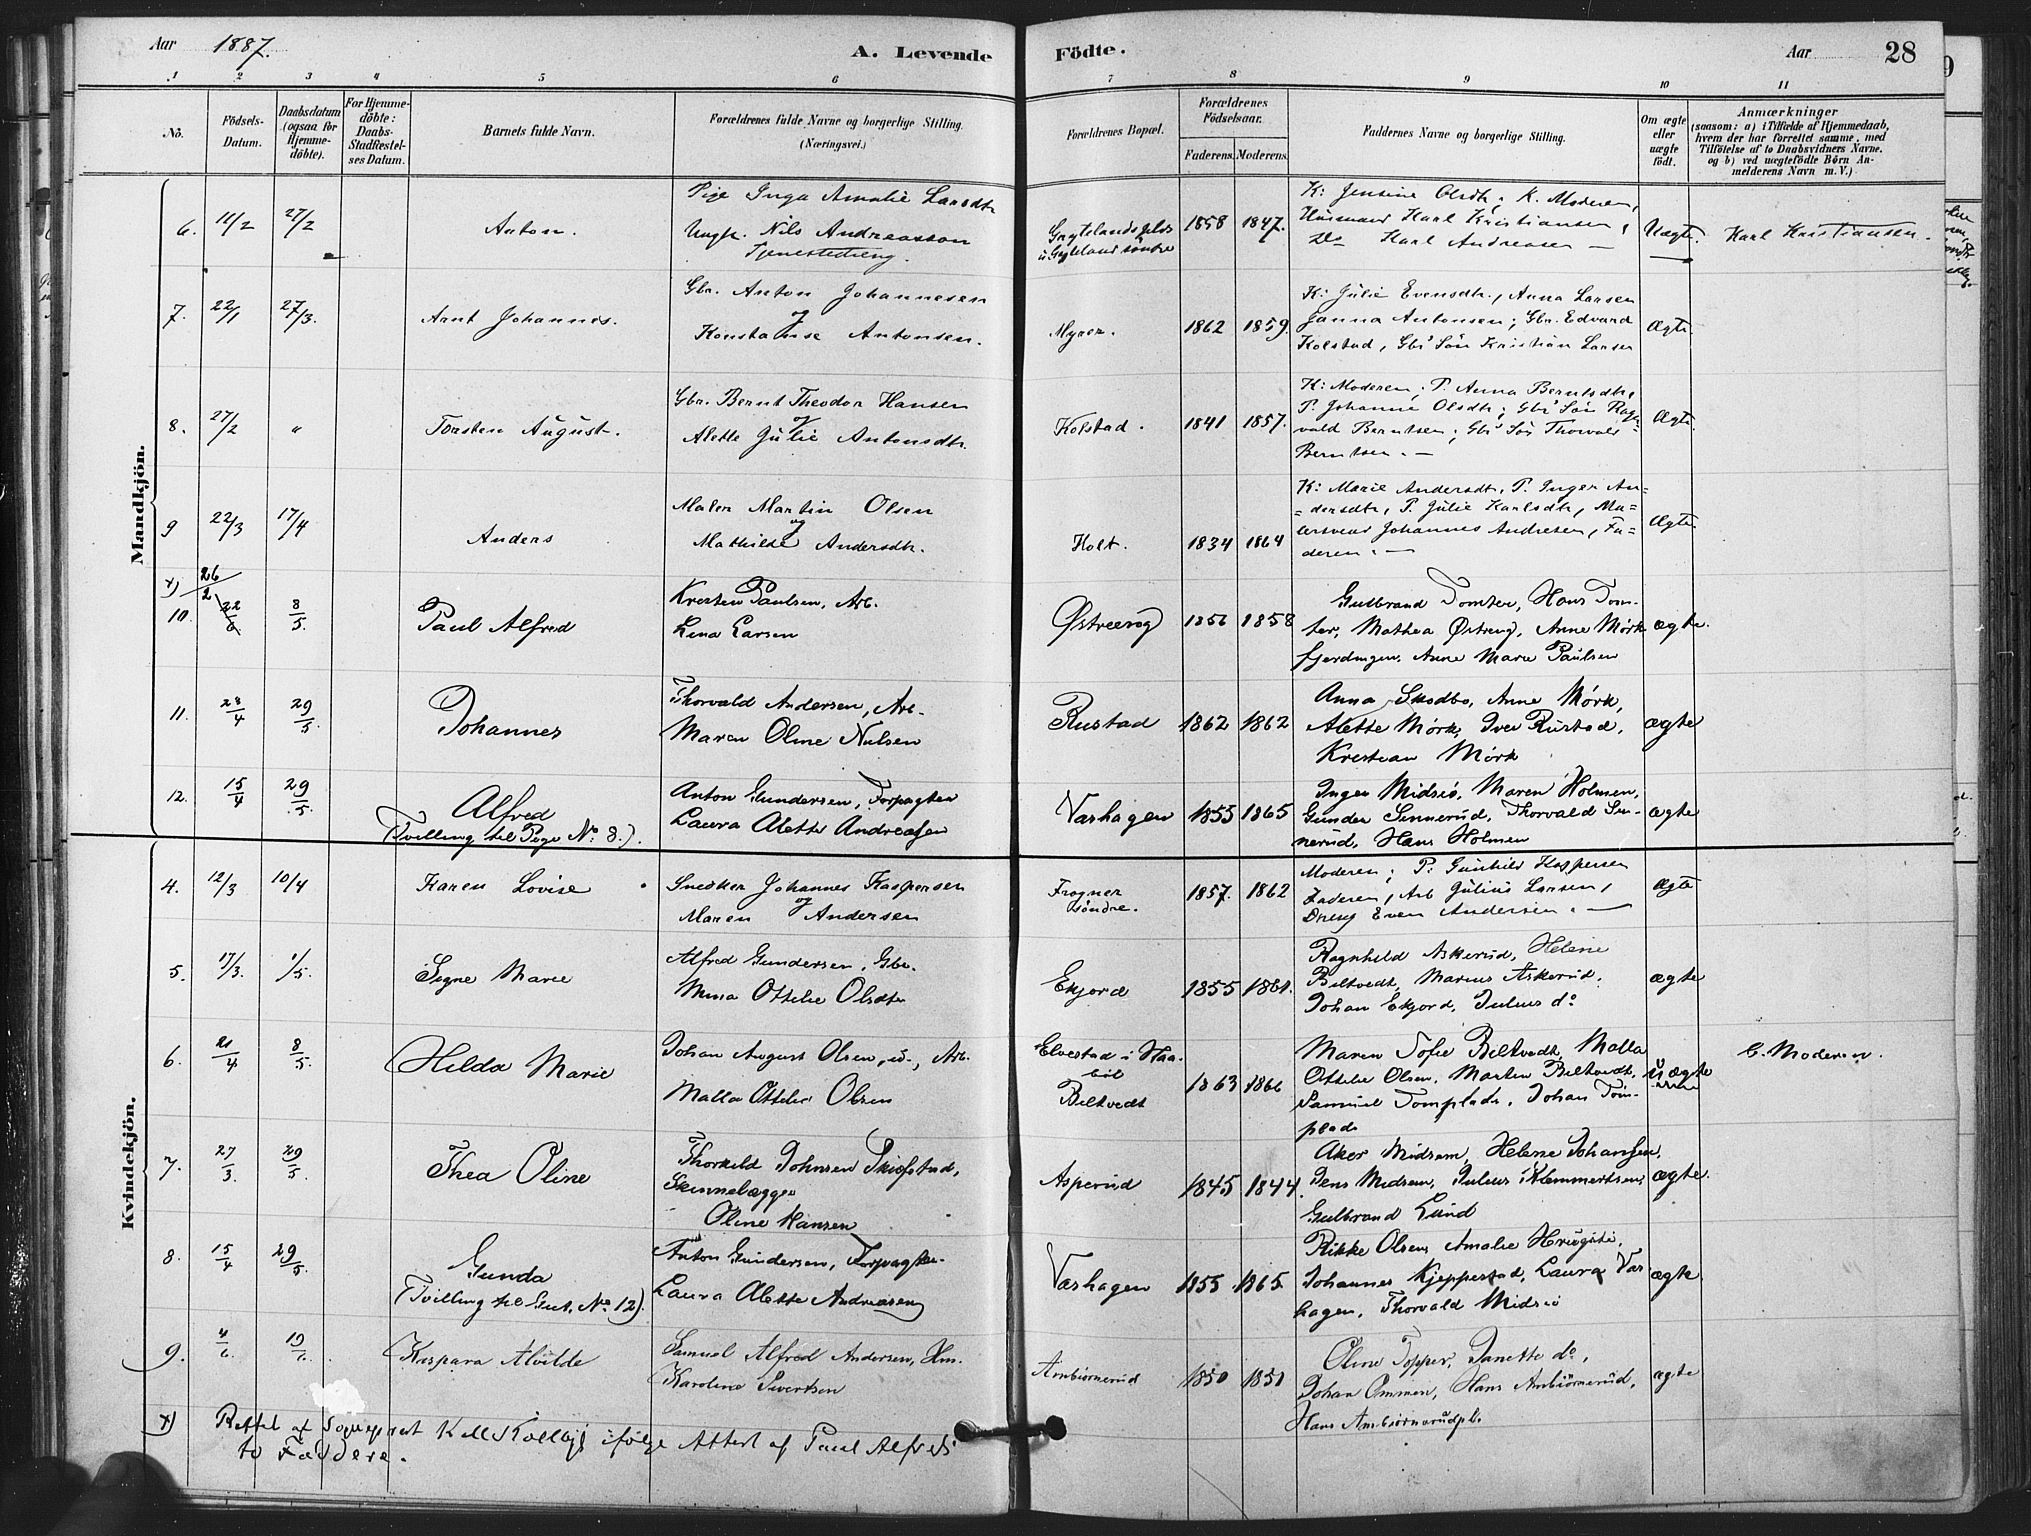 Aar 1887.
A. Levende Födte.
Aar 28
1 2 3 4 5 6 7 8 9 10 11
No.
Födsels-Datum.
Daabsdatum (ogsaa for Hjemme-döbte).
For Hjemme-döbte: Daabs-Stadfæstel-ses Datum.
Barnets fulde Navn.
Forældrenes fulde Navne og borgerlige Stilling. (Næringsvei.)
Forældrenes Bopæl.
Forældrenes Födselsaar.
Faderens. Moderens.
Faddernes Navne og borgerlige Stilling.
Om ægte eller uægte födt.
Anmærkninger
(saasom: a) i Tilfælde af Hjemmedaab,
hvem der har forrettet samme, med
Tilföielse af to Daabsvidners Navne.
og b) ved uægtefödte Börn An-
melderens Navn m. V.)
Mandkjön.
6. 11/2 27/2 Anton.
Pige Inga Amalie Larsdtr
Ungk. Nils Andreassen
Tjenestedreng.
1858 1847.
K: Jensine Olsdtr, K. Moderen,
Husmand Karl Kristiansen,
Do Karl Andreasen —
Uægte. Karl Kristiansen.
7. 22/1 27/3. Arnt Johannes.
Gbr. Anton Johannesen
og
Konstanse Antonsen.
Myrer. 1862 1859.
K: Julie Evensdtr., Anna Larsen
Janna Antonsen; Gbr. Edvard
Kolstad, Gbr Sön Kristian Larsen
Ægte.
8. 27/2 " Torsten August.
Gbr. Bernt Theodor Hansen
og
Alette Julie Antonsdtr.
Kolstad. 1841 1857.
K: Moderen; P. Anna Berntsdtr,
P. Johanne Olsdtr; Gbr Sön Rag-
vald Berntsen; Gbr Sön Thorvald
Berntsen. —
Ægte.
9 22/3 17/4 Anders
Maler Martin Olsen
og
Mathilde Andersdtr.
Holt. 1834 1864
K: Marie Andersdtr, P. Inger An-
=dersdtr, P. Julie Karlsdtr, Ma-
Johannes Andresen, Fa-
deren. —
Ægte.
x) 26/2
10. 22/6 8/5. Paul Alfred
Kresten Paulsen, Arb.
Lina Larsen
Østreeng 1856 1858
Gulbrand Tomter, Hans Tom-
ter, Mathea Østreng, Anne Mörk
fjerdingen, Anne Marie Paulsen
ægte.
11. 28/4 29/5. Johannes
Thorvald Andersen, Arb.
Maren Oline Nielsen
Rustad 1862 1862
Anna Skodbo, Anne Mörk,
Alette Mörk, Iver Rustad,
Krestian Mörk
ægte
12. 15/4 29/5. Alfred
(Tvilling til Pige No 8.)
Anton Gundersen, Forpagter
Laura Alette Andreasen
Varhagen 1855 1865
Inger Midsiö, Maren Holmen,
Gunder Sinnerud, Thorvald Sin-
nerud, Hans Holmen
ægte
Kvindekjön.
4. 12/3 10/4 Karen Lovise
Snedker Johannes Kaspersen
og
Maren Andersen
Frogner söndre. 1857. 1862
Moderen; P. Gunhild Kaspersen
Faderen, Arb Julius Larsen,
Dreng Even Andersen. —
Ægte
5. 17/3. 1/5. Signe Marie
Alfred Gundersen, Gbr.
Mina Ottelie Olsdtr
Ekjord 1855 1861.
Ragnhild Askerud, Helene
Biltvedt, Marius Askerud.
Johan Ekjord, Julius do
ægte
6. 21/4 8/5. Hilda Marie
Johan August Olsen, u., Arb.
Malla Ottelie Olsen
Elvestad i Haa-
böl
Biltvedt
1863 1866
Maren Sofie Biltvedt, Malla
Ottelie Olsen, Martin Biltvedt,
Samuel Tomplads, Johan Tom-
plads
uægte C. Moderen.
7. 27/3. 29/5. Thea Oline
Thorkild Johnsen Skiöfstad,
Skinnelægger
Oline Hansen
Asperud 1845 1844.
Midsem, Helene Johansen,
Jens Midsem, Julius Klemmertsen,
Gulbrand Lund
ægte.
8. 15/4 29/5. Gunda
(Tvilling til Gut, No 12).
Anton Gundersen, Forpagter
Laura Alette Andreasen
Varhagen 1855 1865.
Rikke Olsen, Amalie
Johannes Kjeppestad, Laura Var
hagen, Thorvald Midsiö
ægte
9. 4/6. 19/6. Kaspara Alvilde
Samuel Alfred Andersen, Hm.
Karoline Sivertsen
Anbiörnerud 1850 1851
Oline Topper, Janette do,
Johan Ommen, Hans Anbiörnerud,
Hans Ambiörnerudpl.
ægte
x) Rettet af Sogneprest Kolby ifølge Attest af Paul Alfreds
to Faddere.